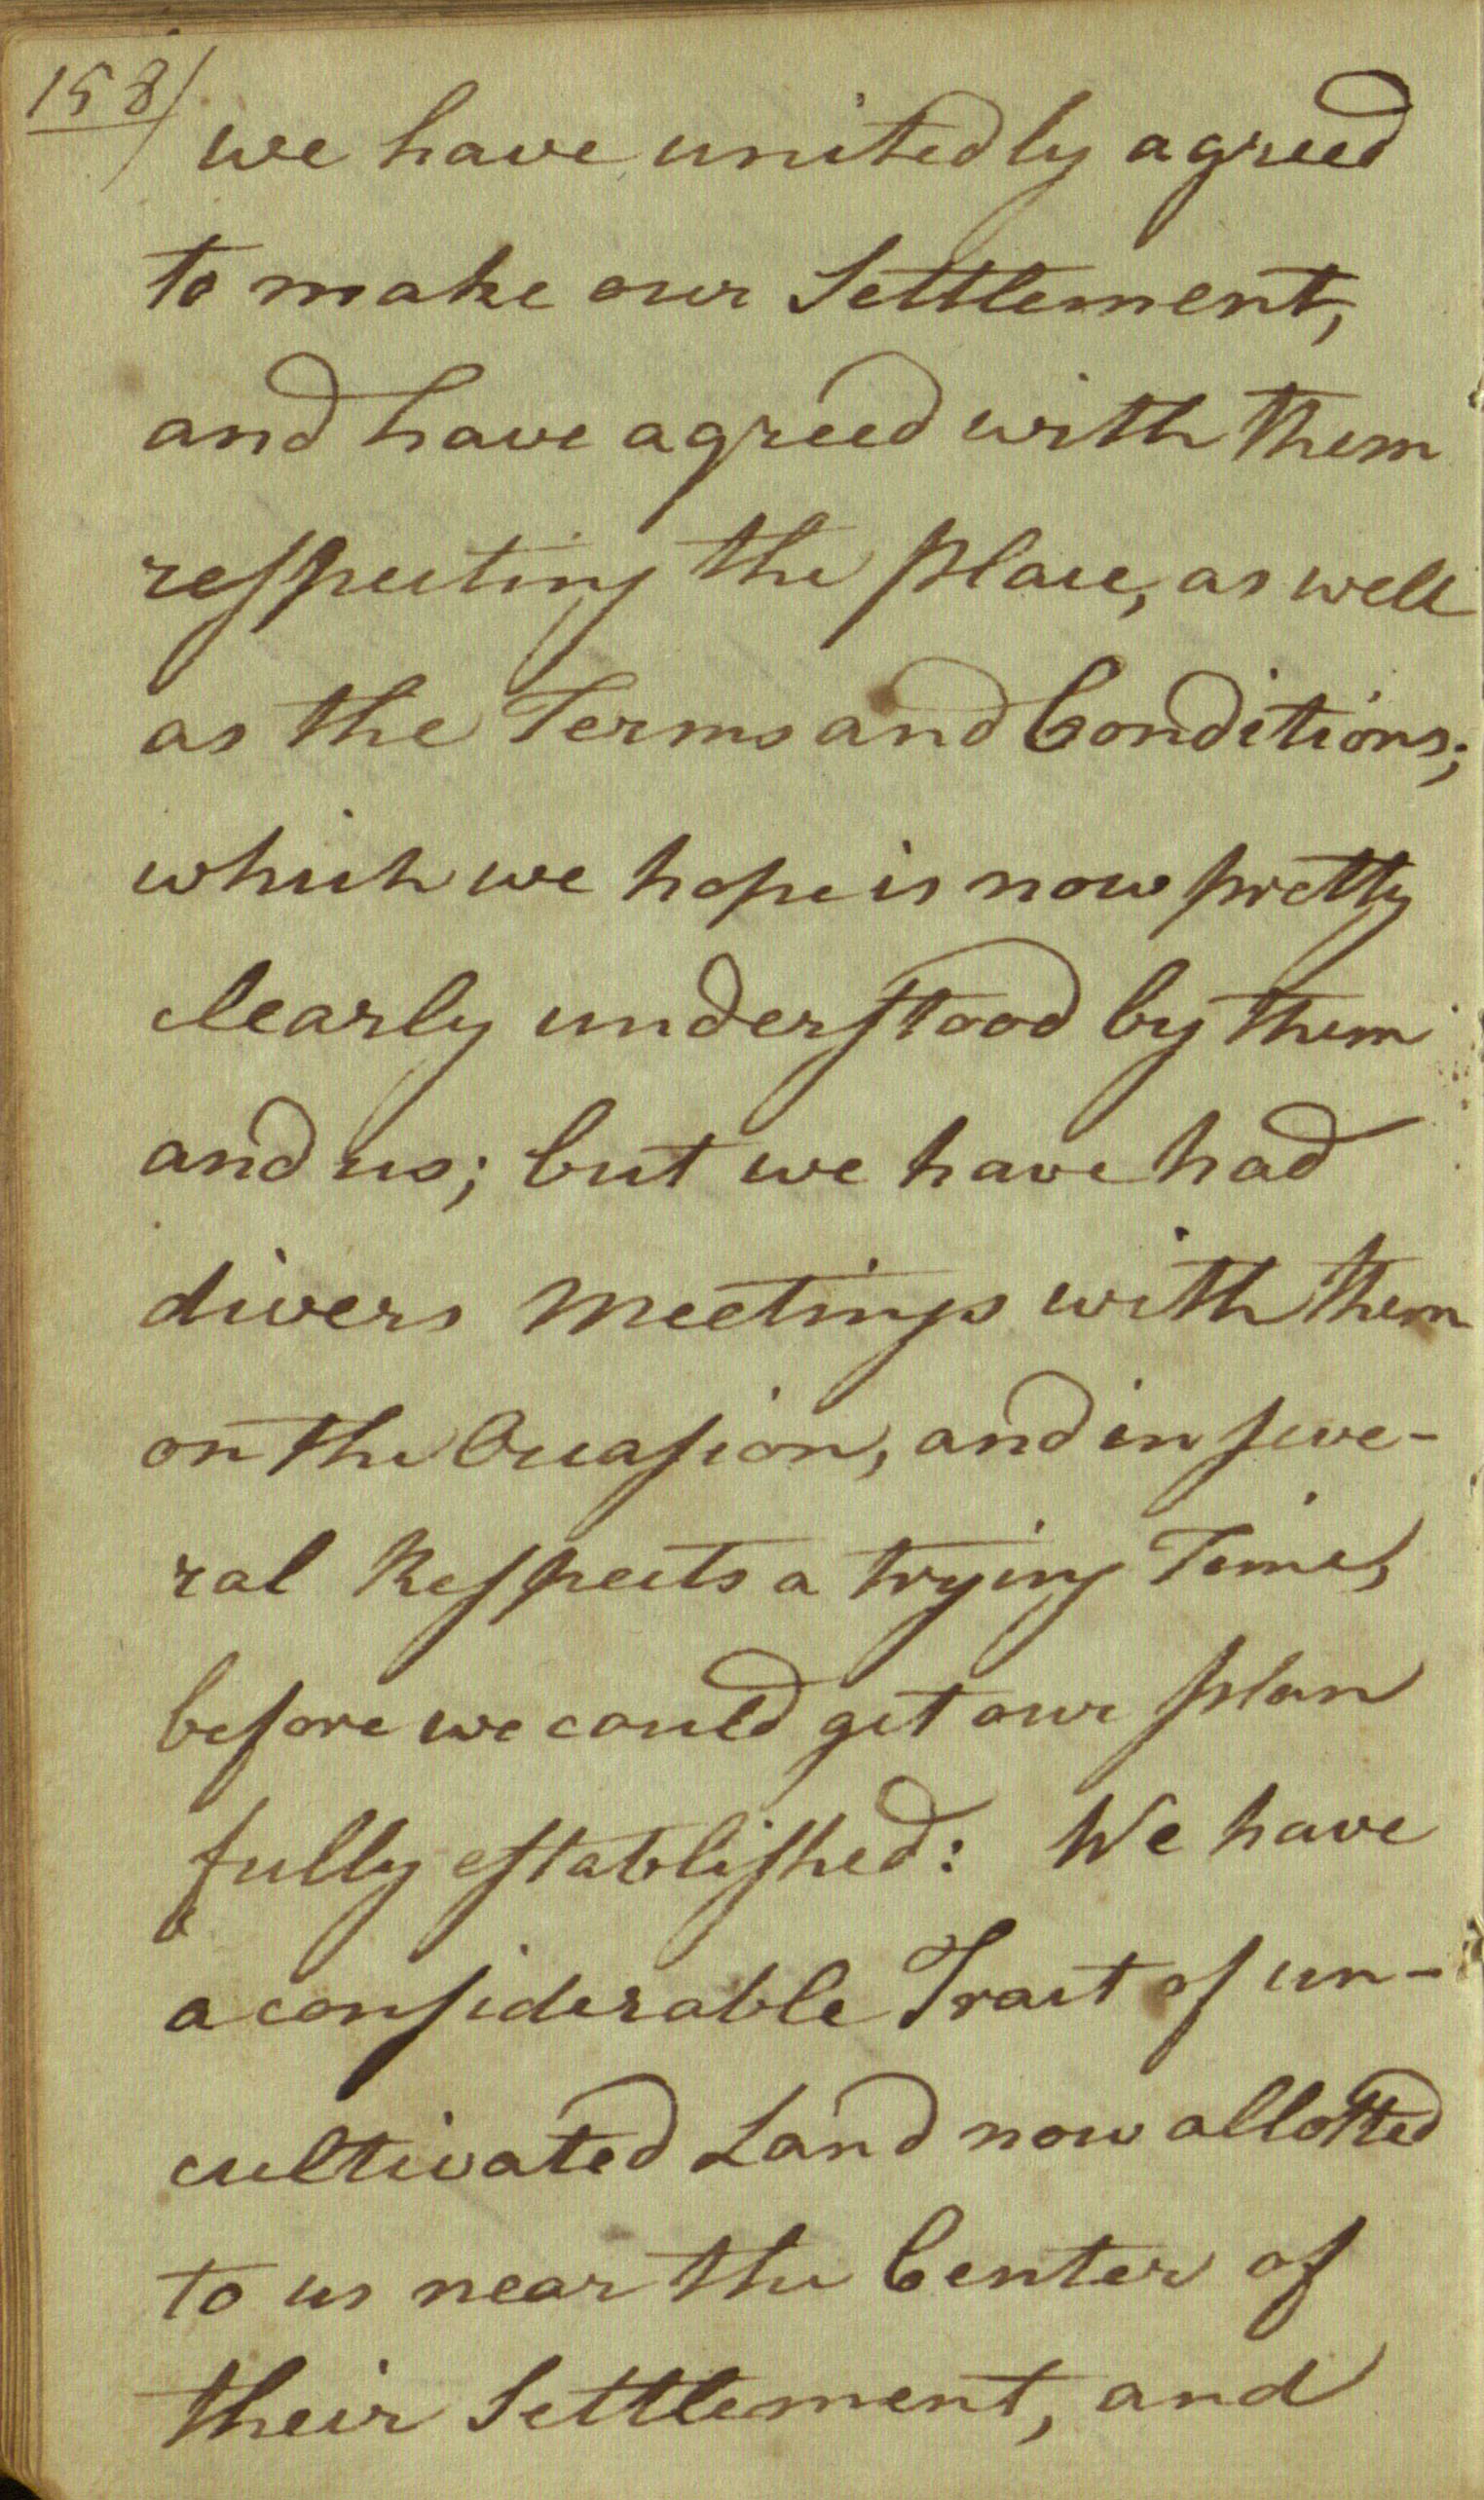 158/
we have unitedly agreed
to make our Settlement,
and have agreed with them
respecting the place, as well
as the Terms and Conditions;
which we hope is now pretty
clearly understood by them
and us; but we have had
divers Meetings with them
on the Occasion, and in seve-
ral Respects a trying Time,
before we could get our plan
fully established: We have
a considerable Tract of un-
cultivated Land now allotted
to us near the Center of
their Settlement, and